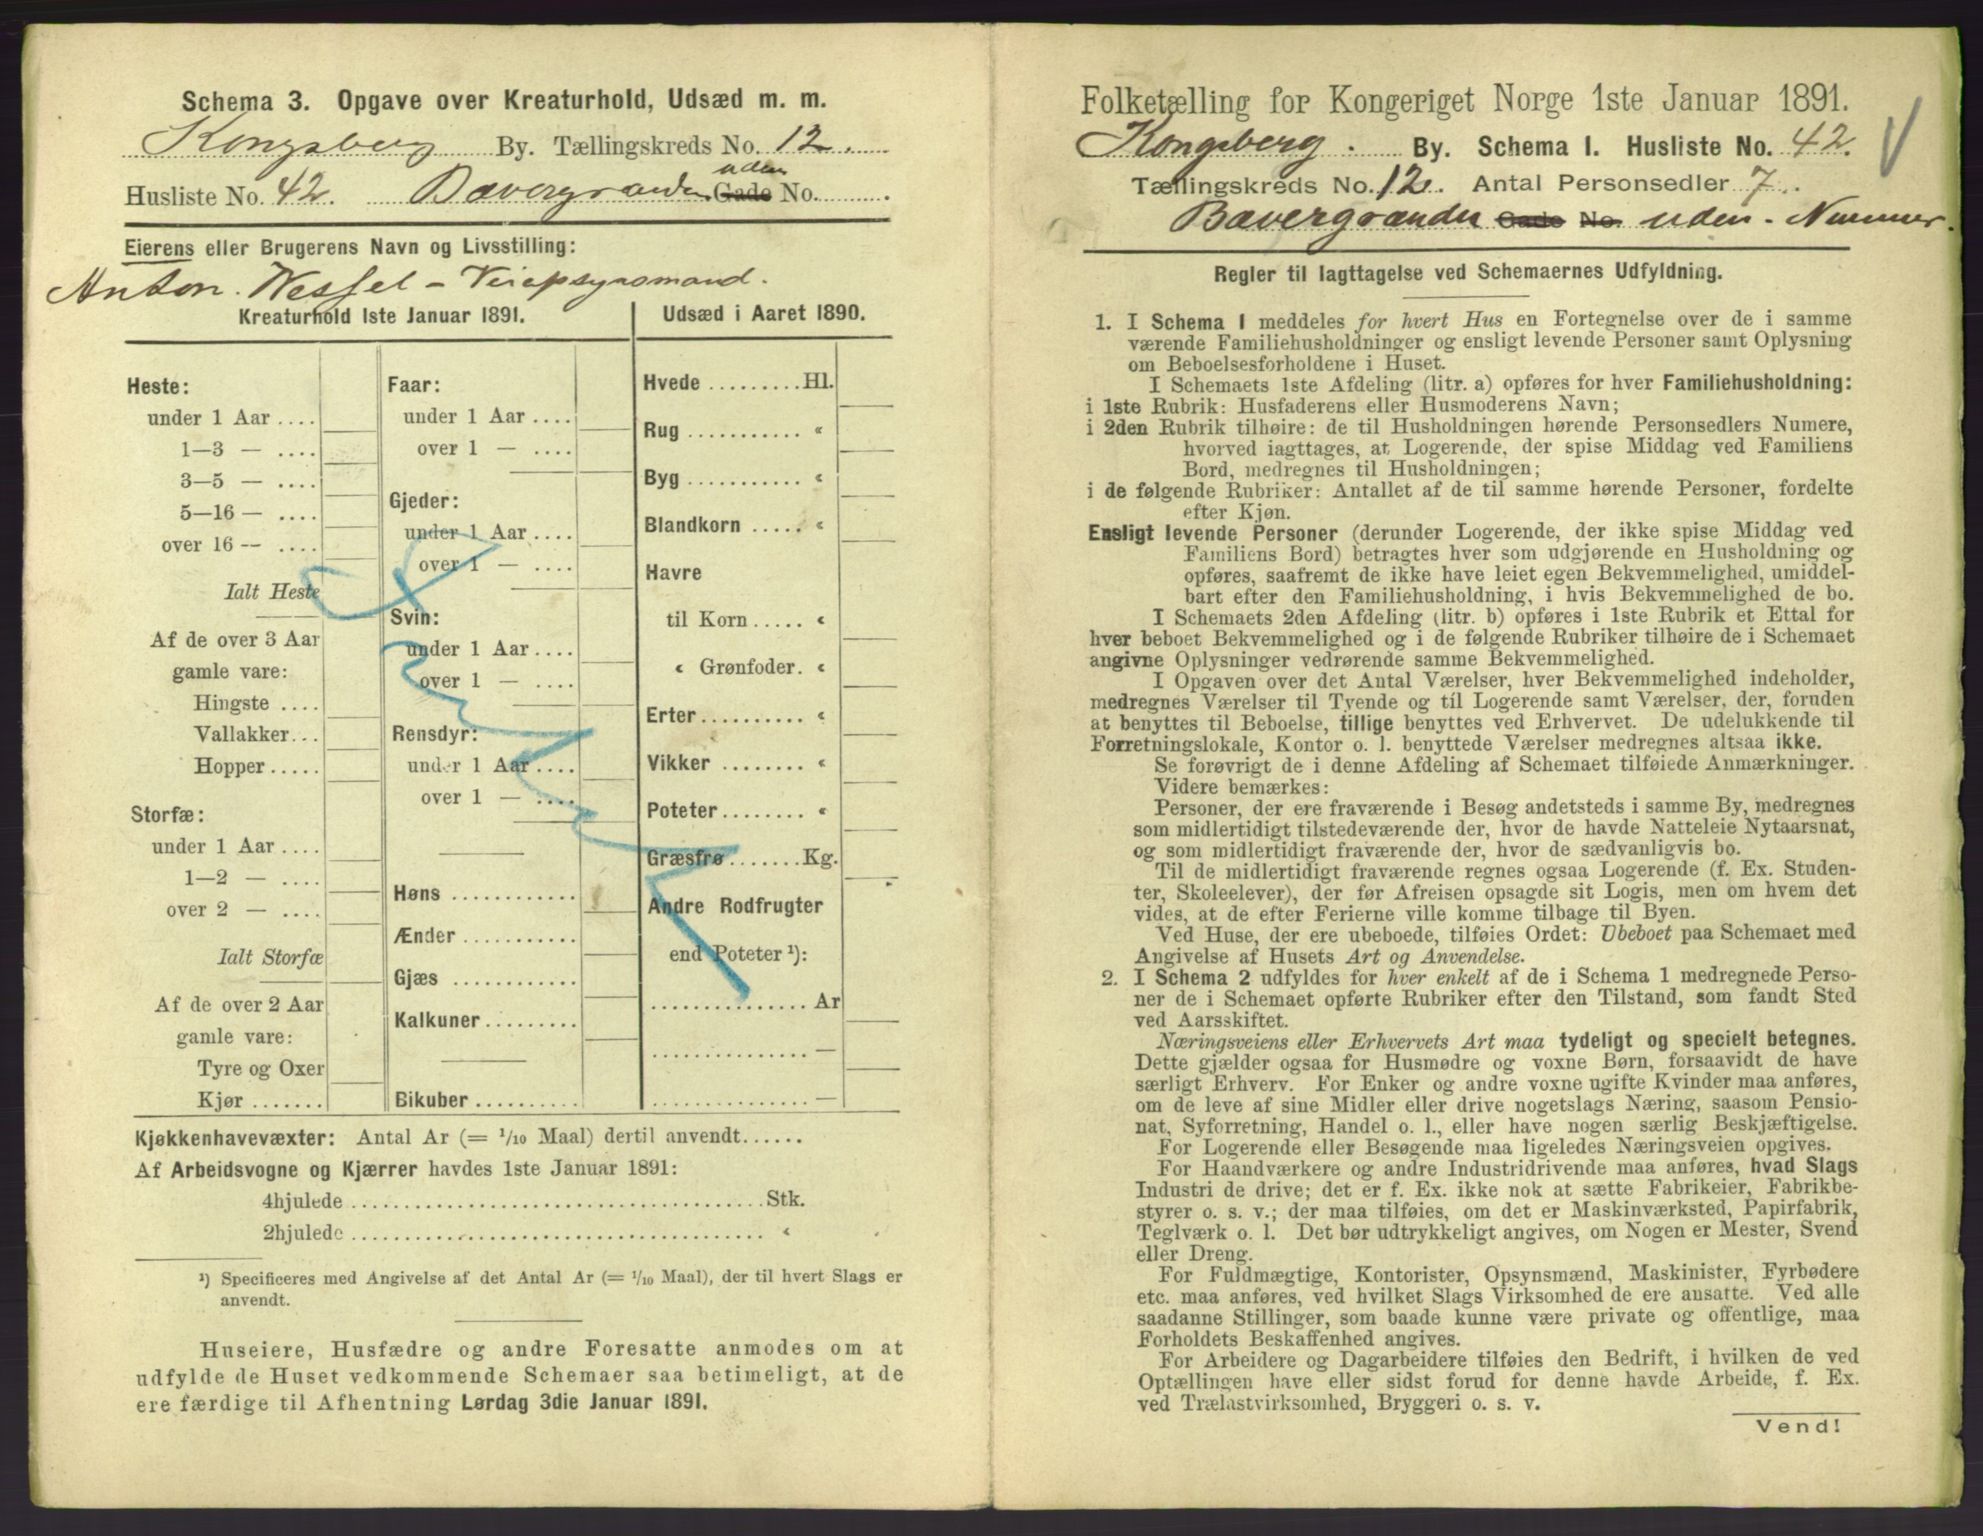 Schema 3. Opgave over Kreaturhold, Udsæd m. m.
Kongsberg By. Tællingskreds No. 12.
uden
Husliste No. 42. Bævergrænden Gade No.
Eierens eller Brugerens Navn og Livsstilling:
Anton Wessel - Veiopsynsmand.
Kreaturhold 1ste Januar 1891.
Heste:
under 1 Aar ....
1—3 — ....
3—5 — ....
5—16 — ....
over 16 — ....
Ialt Heste
Af de over 3 Aar
gamle vare:
Hingste ....
Vallakker...
Hopper.....
Storfæ:
under 1 Aar....
1—2 — ....
over 2 — ....
Ialt Storfæ
Af de over 2 Aar
gamle vare:
Tyre og Oxer
Kjør .......
Faar:
under 1 Aar....
over 1 — ....
Gjeder:
under 1 Aar....
over 1 — ....
Svin:
under 1 Aar....
over 1 — ....
Rensdyr:
under 1 Aar....
over 1 — ....
Høns ............
Ænder ...........
Gjæs ............
Kalkuner.........
Bikuber..........
Udsæd i Aaret 1890.
Hvede .........Hl.
Rug ........... «
Byg ........... «
Blandkorn ..... «
Havre
til Korn..... «
« Grønfoder. «
Erter.......... «
Vikker ........ «
Poteter........ «
Græsfrø.......Kg.
Andre Rodfrugter
end Poteter ¹):
............... Ar
............... —
............... —
Kjøkkenhavevæxter: Antal Ar (= 1/10 Maal) dertil anvendt......
Af Arbeidsvogne og Kjærrer havdes 1ste Januar 1891:
4hjulede ....................................Stk.
2hjulede .................................... «
¹) Specificeres med Angivelse af det Antal Ar (= 1/10 Maal), der til hvert Slags er
anvendt.
Huseiere, Husfædre og andre Foresatte anmodes om at
udfylde de Huset vedkommende Schemaer saa betimeligt, at de
ere færdige til Afhentning Lørdag 3die Januar 1891.
Folketælling for Kongeriget Norge 1ste Januar 1891.
Kongsberg. By. Schema I. Husliste No. 42.
Tællingskreds No. 12. Antal Personsedler 7.
Bævergrænden Gade No. uden - Nummer.
Regler til Iagttagelse ved Schemaernes Udfyldning.
1. I Schema 1 meddeles for hvert Hus en Fortegnelse over de i samme
værende Familiehusholdninger og ensligt levende Personer samt Oplysning
om Beboelsesforholdene i Huset.
I Schemaets 1ste Afdeling (litr. a) opføres for hver Familiehusholdning:
i 1ste Rubrik: Husfaderens eller Husmoderens Navn;
i 2den Rubrik tilhøire: de til Husholdningen hørende Personsedlers Numere,
hvorved iagttages, at Logerende, der spise Middag ved Familiens
Bord, medregnes til Husholdningen;
i de følgende Rubriker: Antallet af de til samme hørende Personer, fordelte
efter Kjøn.
Ensligt levende Personer (derunder Logerende, der ikke spise Middag ved
Familiens Bord) betragtes hver som udgjørende en Husholdning og
opføres, saafremt de ikke have leiet egen Bekvemmelighed, umiddel-
bart efter den Familiehusholdning, i hvis Bekvemmelighed de bo.
I Schemaets 2den Afdeling (litr. b) opføres i 1ste Rubrik et Ettal for
hver beboet Bekvemmelighed og i de følgende Rubriker tilhøire de i Schemaet
angivne Oplysninger vedrørende samme Bekvemmelighed.
I Opgaven over det Antal Værelser, hver Bekvemmelighed indeholder,
medregnes Værelser til Tyende og til Logerende samt Værelser, der, foruden
at benyttes til Beboelse, tillige benyttes ved Erhvervet. De udelukkende til
Forretningslokale, Kontor o. l. benyttede Værelser medregnes altsaa ikke.
Se forøvrigt de i denne Afdeling af Schemaet tilføiede Anmærkninger.
Videre bemærkes:
Personer, der ere fraværende i Besøg andetsteds i samme By, medregnes
som midlertidigt tilstedeværende der, hvor de havde Natteleie Nytaarsnat,
og som midlertidigt fraværende der, hvor de sædvanligvis bo.
Til de midlertidigt fraværende regnes ogsaa Logerende (f. Ex. Studen-
ter, Skoleelever), der før Afreisen opsagde sit Logis, men om hvem det
vides, at de efter Ferierne ville komme tilbage til Byen.
Ved Huse, der ere ubeboede, tilføies Ordet: Ubeboet paa Schemaet med
Angivelse af Husets Art og Anvendelse.
2. I Schema 2 udfyldes for hver enkelt af de i Schema 1 medregnede Perso-
ner de i Schemaet opførte Rubriker efter den Tilstand, som fandt Sted
ved Aarsskiftet.
Næringsveiens eller Erhvervets Art maa tydeligt og specielt betegnes.
Dette gjælder ogsaa for Husmødre og voxne Børn, forsaavidt de have
særligt Erhverv. For Enker og andre voxne ugifte Kvinder maa anføres,
om de leve af sine Midler eller drive nogetslags Næring, saasom Pensio-
nat, Syforretning, Handel o. l., eller have nogen særlig Beskjæftigelse.
For Logerende eller Besøgende maa ligeledes Næringsveien opgives.
For Haandværkere og andre Industridrivende maa anføres, hvad Slags
Industri de drive; det er f. Ex. ikke nok at sætte Fabrikeier, Fabrikbe-
styrer o. s. v.; der maa tilføies, om det er Maskinværksted, Papirfabrik,
Teglværk o. l. Det bør udtrykkeligt angives, om Nogen er Mester, Svend
eller Dreng.
For Fuldmægtige, Kontorister, Opsynsmænd, Maskinister, Fyrbødere
etc. maa anføres, ved hvilket Slags Virksomhed de ere ansatte. Ved alle
saadanne Stillinger, som baade kunne være private og offentlige, maa
Forholdets Beskaffenhed angives.
For Arbeidere og Dagarbeidere tilføies den Bedrift, i hvilken de ved
Optællingen have eller sidst forud for denne havde Arbeide, f. Ex.
ved Trælastvirksomhed, Bryggeri o. s. v.
Vend!